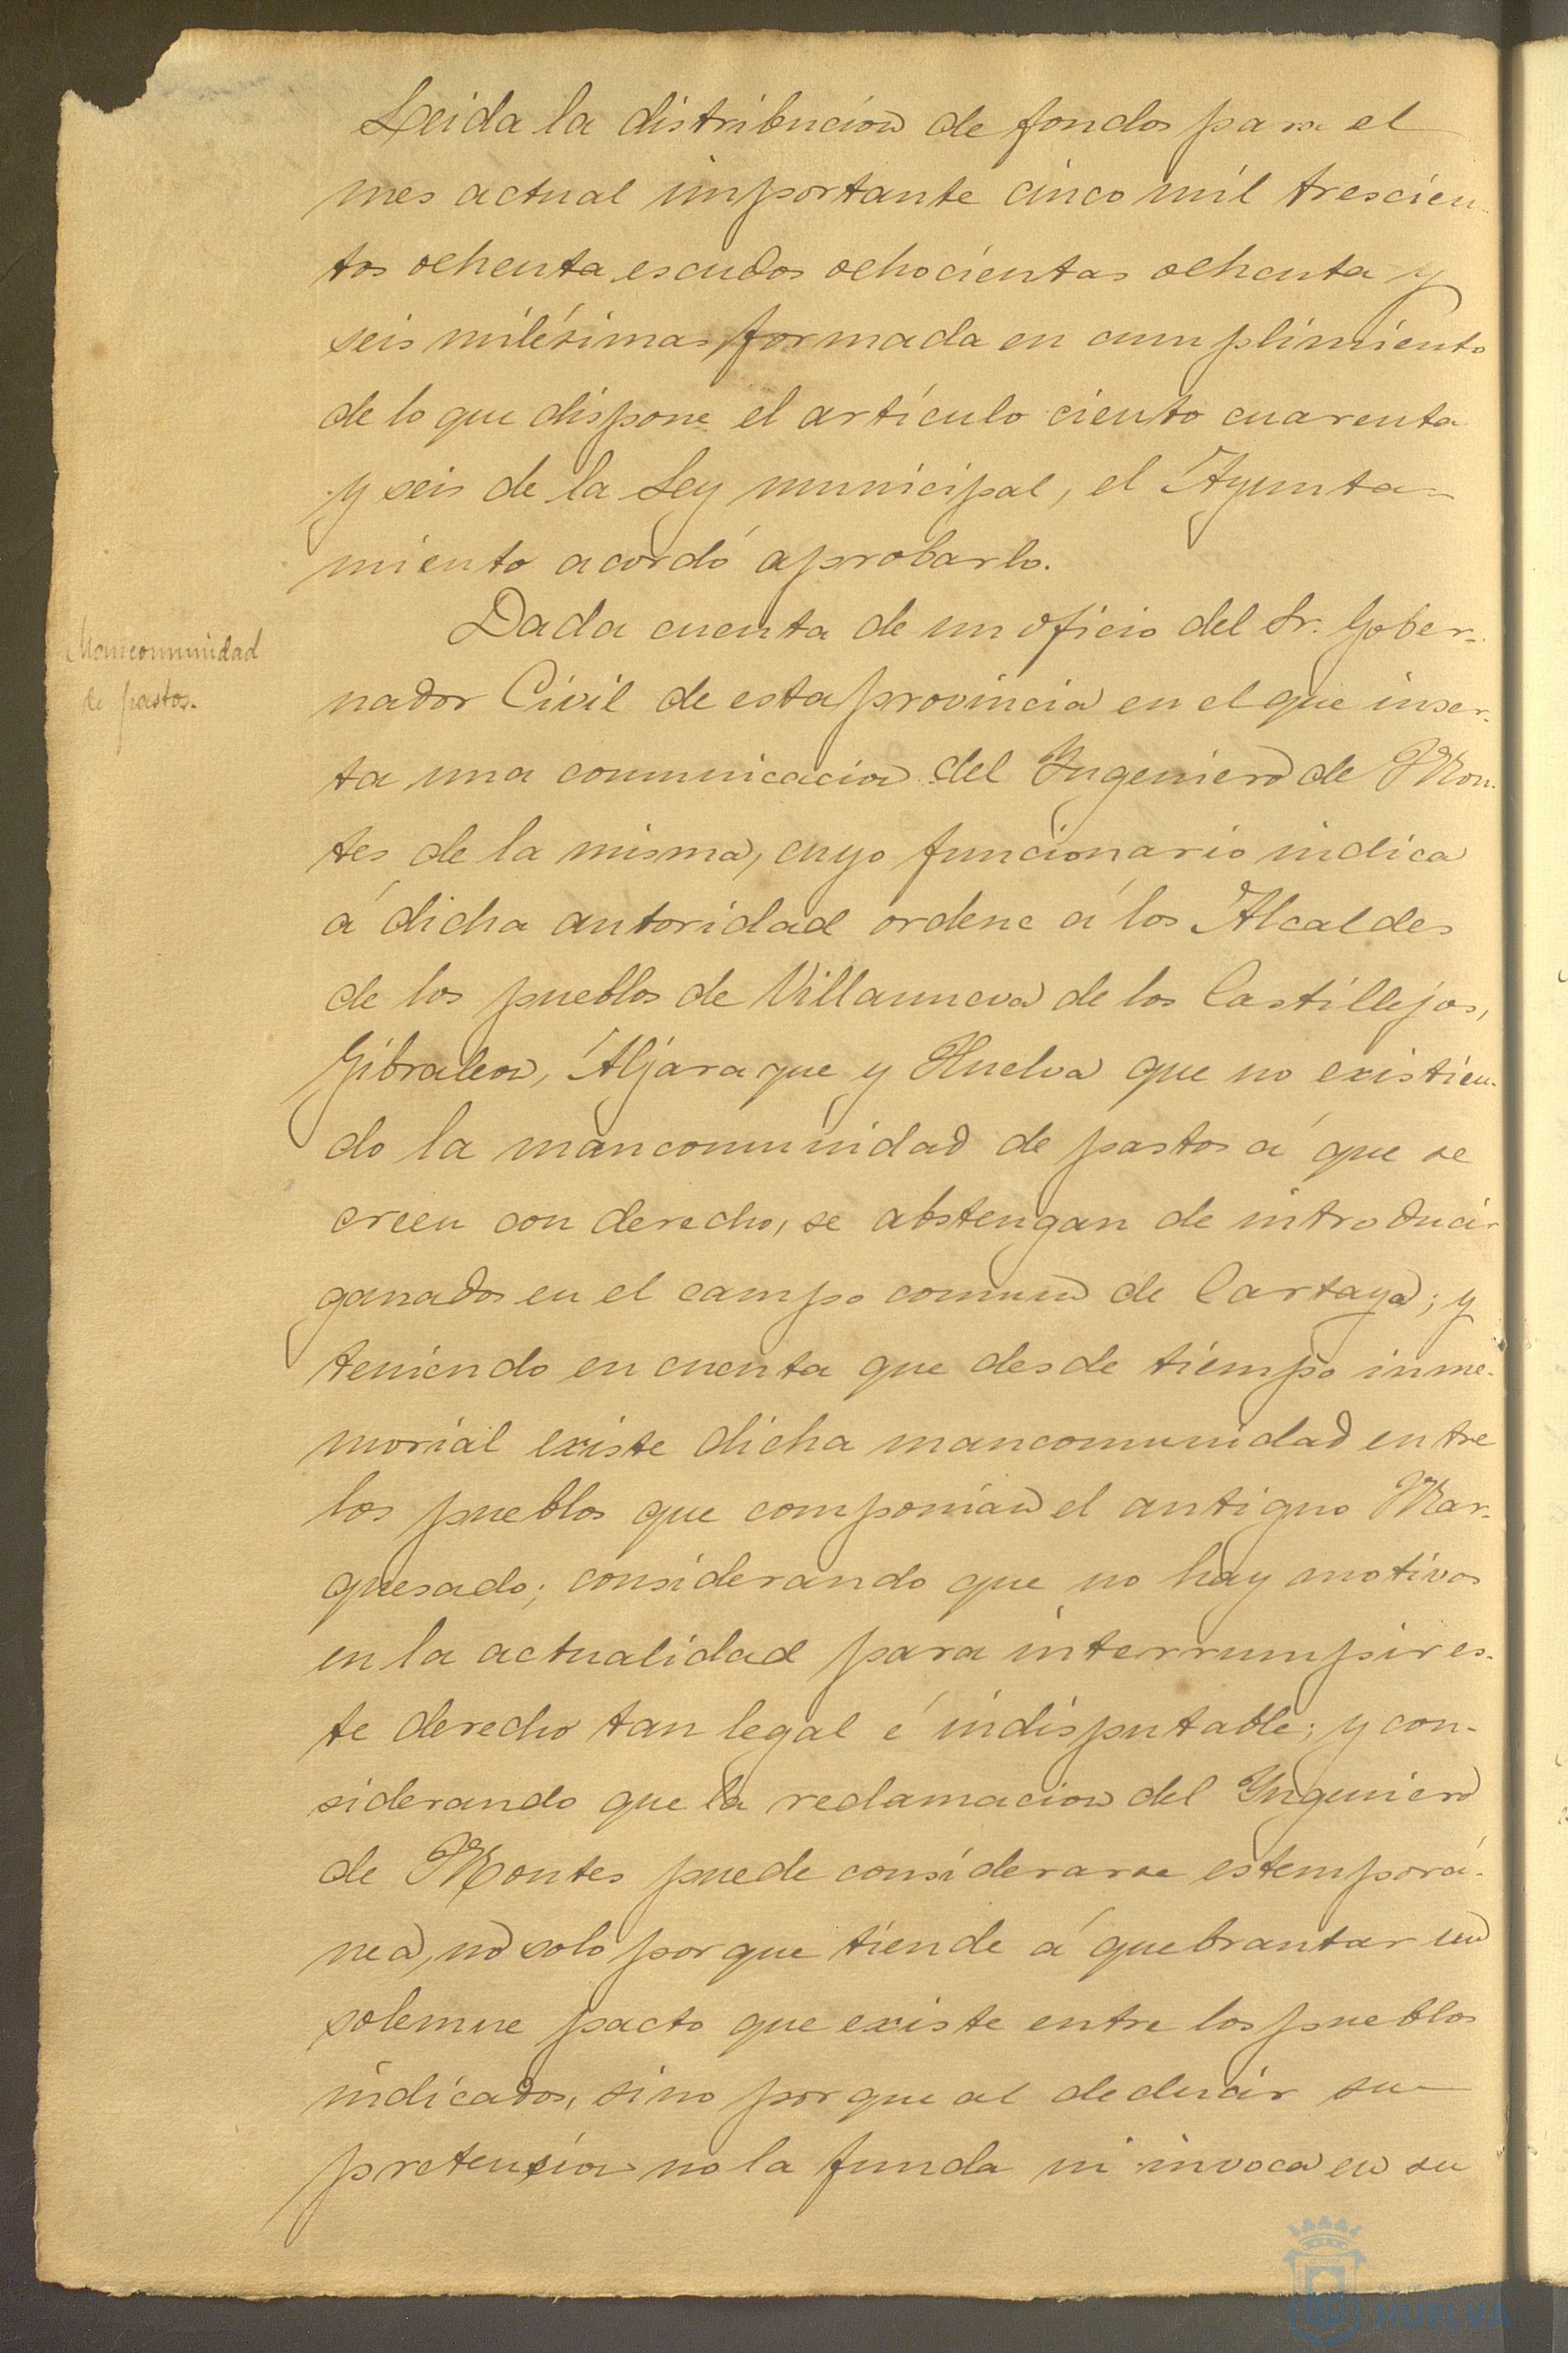 Leida la distribucion de fondos para el
mes actual importante cinco mil trescien-
tos ochenta escudos ochocientas ochenta y
seis milésimas, formada en cumplimiento
de lo que dispone el artículo ciento cuarenta
y seis de la Ley municipal, el Ayunta-
miento acordó aprobarlo.
Dada cuenta de un oficio del Sr. Gober-
Mancomunidad
de pastos.
nador Civil de esta provincia en el que inser-
ta una comunicacion del Ingeniero de Mon-
tes de la misma, cuyo funcionario indica
á dicha autoridad ordene á los Alcaldes
de los pueblos de Villanueva de los Castillejos,
Gibraleon, Aljaraque y Huelva que no existien-
do la mancomunidad de pastos á que se
creen con derecho, se abstengan de introducir
ganados en el campo comun de Cartaya; y
teniendo en cuenta que desde tiempo inme-
morial existe dicha mancomunidad entre
los pueblos que componian el antiguo Mar-
quesado; considerando que no hay motivos
en la actualidad para interrumpir es-
te derecho tan legal é indisputable; y con-
siderando que la reclamacion del Ingeniero
de Montes puede considerarse estemporá-
nea, no solo porque tiende á quebrantar un
solemne pacto que existe entre los pueblos
indicados, sino porque al deducir su
pretension no la funda ni invoca en su
HUELVA